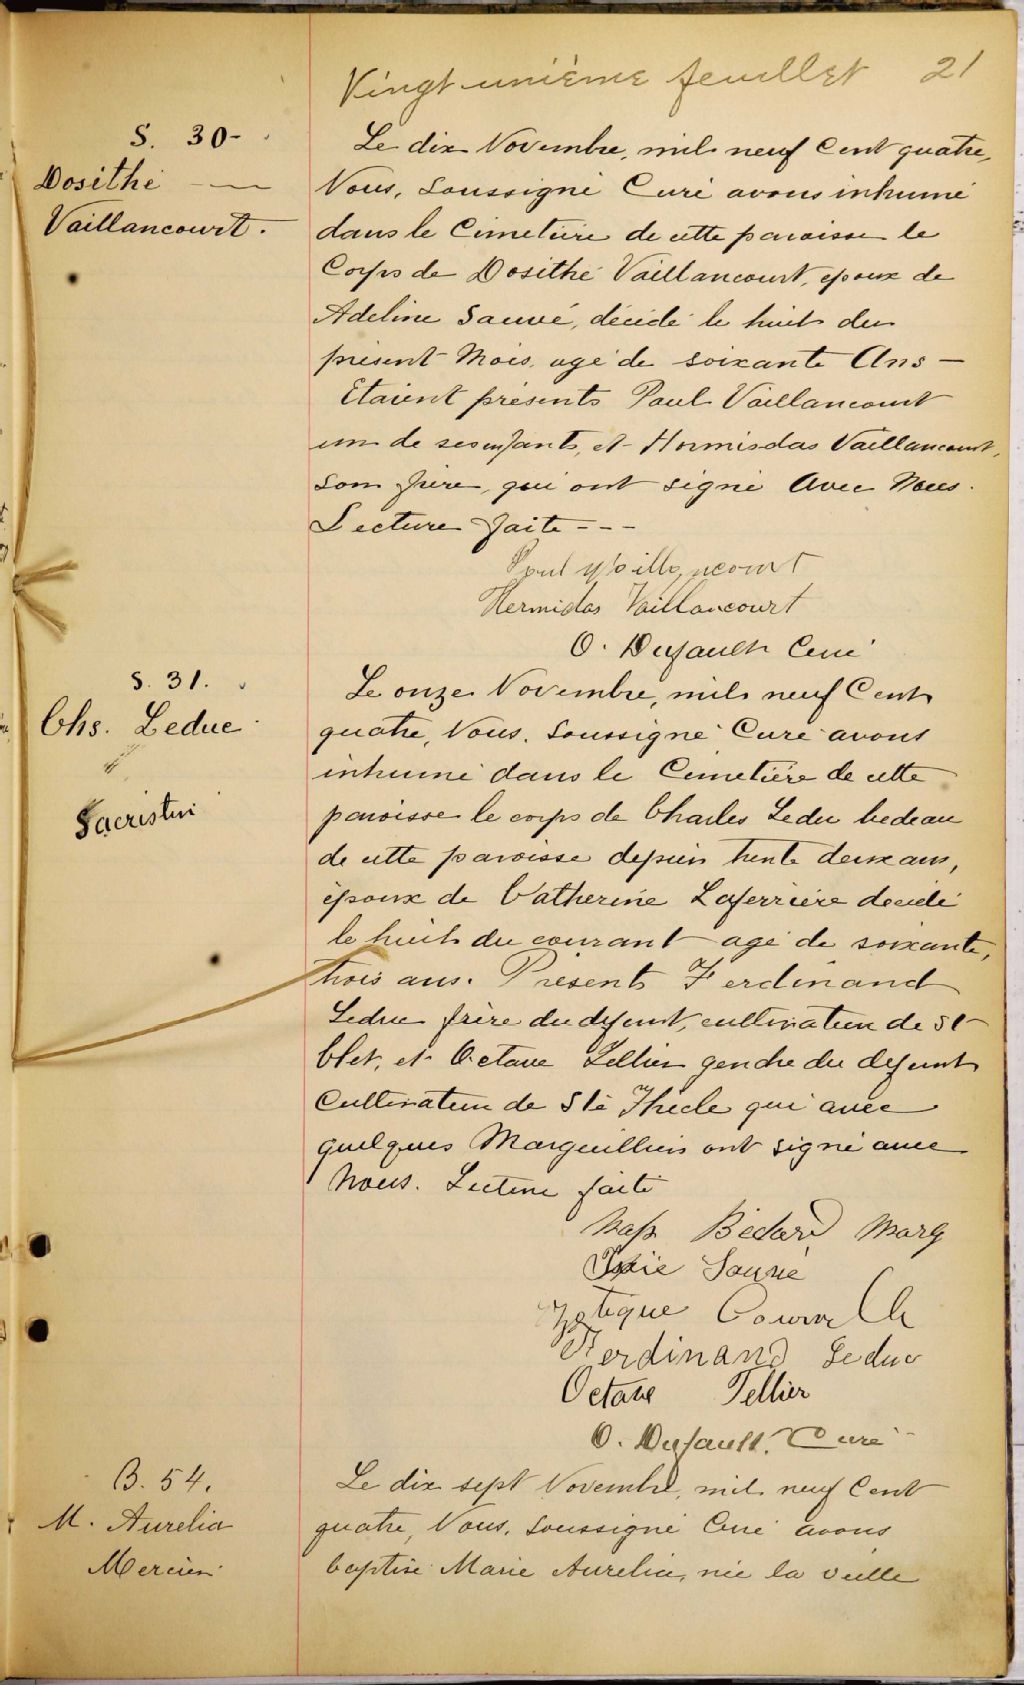 Vingt unième feuillet 21
S. 30-
Dosithé
Vaillancourt.
Le dix Novembre, mil neuf Cent quatre,
Nous, Soussigné Curé avons inhumé
dans le Cimetière de cette paroisse le
Corps de Dosithé Vaillancourt, époux de
Adeline Sauvé, décédé le huit du
présent Mois, agé de soixante Ans —
Etaient présents Paul Vaillancourt
un de ses enfants, et Hormisdas Vaillancourt,
son frère, qui ont signé Avec Nous.
Lecture faite - - -
Paul Vaillancourt
Hermidas Vaillancourt
O. Dufault Curé
S. 31.
Chs. Leduc
Sacristin
Le onze Novembre, mil neuf Cent
quatre, Nous, Soussigné Curé avons
inhumé dans le Cimetière de cette
paroisse le corps de Charles Leduc bedeau
de cette paroisse depuis trente deux ans,
époux de Catherine Laferrière décédé
le huit du courant agé de soixante,
trois ans. Présents Ferdinand
Leduc frère du défunt, cultivateur de St
Clet, et Octave Tellier gendre du defunt
Cultivateur de Ste Thècle qui avec
quelques Marguilliers ont signé avec
Nous. Lecture faite
Nap Bédard Marg
Sauvé
Zotique Courville
Ferdinand Leduc
Octave Tellier
O. Dufault. Curé
B. 54.
M. Aurelia
Mercier
Le dix sept Novembre, mil neuf Cent
quatre, Nous, Soussigné Curé avons
baptisé Marie Aurelia, née la veille